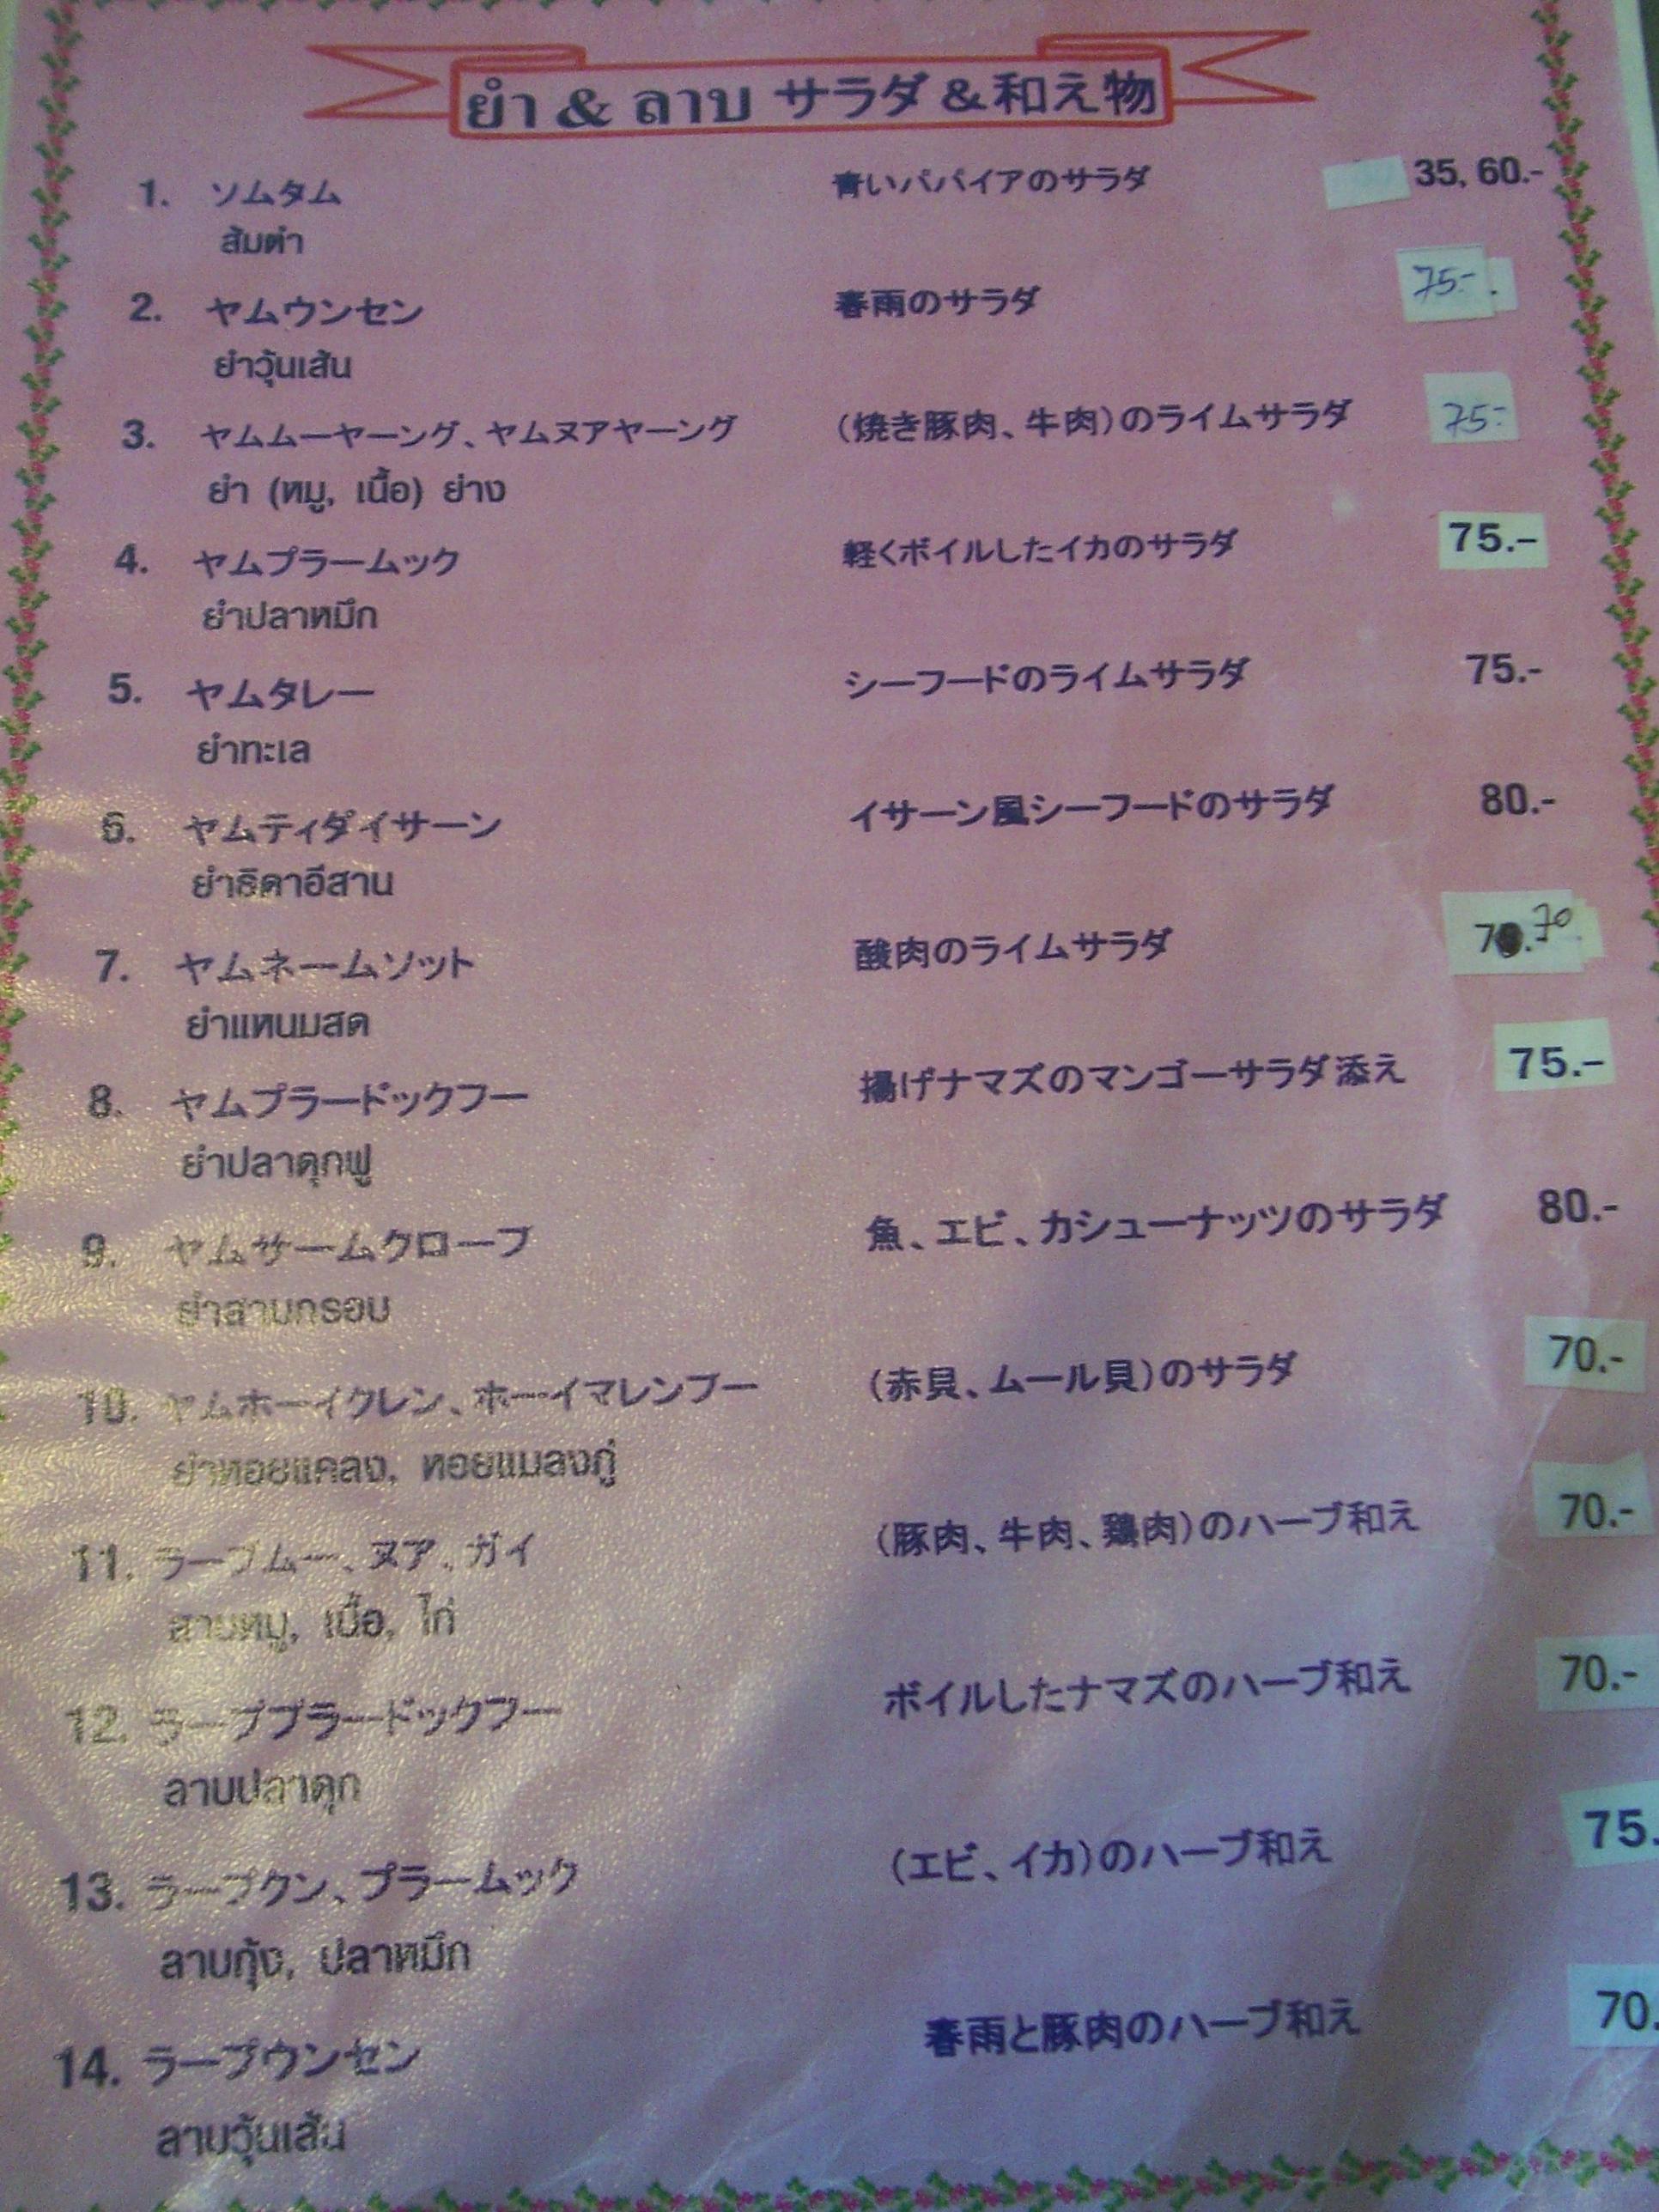 ยำ & ลาบ サラダ & 和え物
1. ソムタム 青いパパイアのサラダ 35, 60.-
ส้มตำ
2. ヤムウンセン 春雨のサラダ 75.-
ยำวุ้นเส้น
3. ヤムムーヤーング、ヤムヌアヤーング (焼き豚肉、牛肉)のライムサラダ 75.-
ยำ (หมู, เนื้อ) ย่าง
4. ヤムプラームック 軽くボイルしたイカのサラダ 75.-
ยำปลาหมึก
5. ヤムタレー シーフードのライムサラダ 75.-
ยำทะเล
6. ヤムティダイサーン イサーン風シーフードのサラダ 80.-
ยำธิดาอีสาน
7. ヤムネームソット 酸肉のライムサラダ 70
ยำแหนมสด
8. ヤムプラードックフー 揚げナマズのマンゴーサラダ添え 75.-
ยำปลาดุกฟู
9. ヤムサームクローブ 魚、エビ、カシューナッツのサラダ 80.-
ยำสามกรอบ
10. ヤムホーイクレン、ホーイマレンプー (赤貝、ムール貝)のサラダ 70.-
ยำหอยแคลง, หอยแมลงภู่
11. ラーブムー、ヌア、ガイ (豚肉、牛肉、鶏肉)のハーブ和え 70.-
ลาบหมู, เนื้อ, ไก่
12. ラーブプラードックフー ボイルしたナマズのハーブ和え 70.-
ลาบปลาดุก
13. ラーブクン、プラームック (エビ、イカ)のハーブ和え 75.
ลาบกุ้ง, ปลาหมึก
14. ラーブウンセン 春雨と豚肉のハーブ和え 70.
ลาบวุ้นเส้น